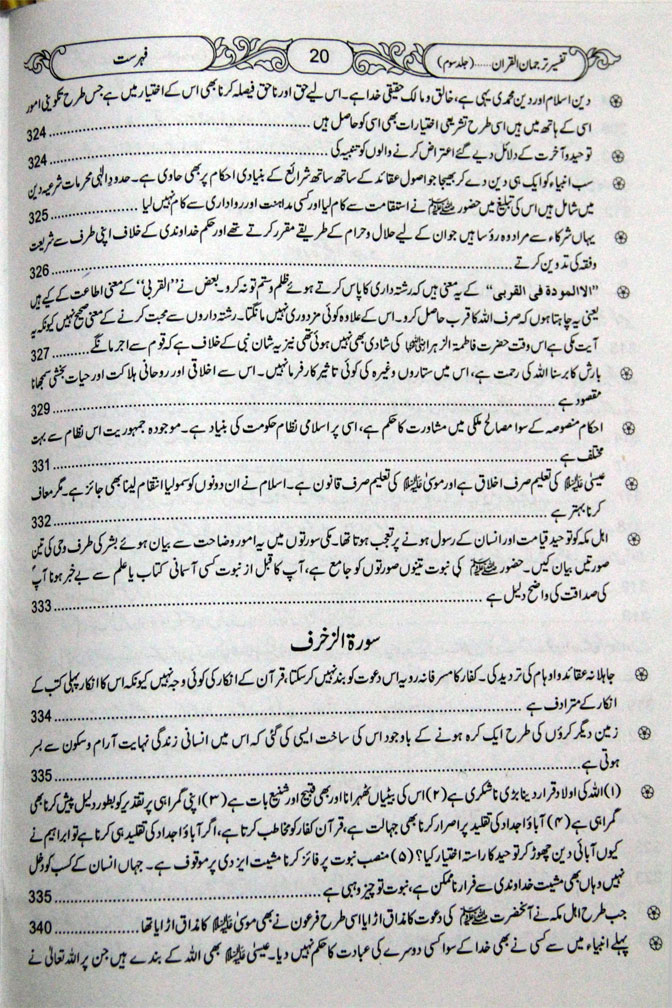 تفسیر ترجمان القرآن.....(جلد سوم) 20 فہرست
دین اسلام اور دین محمدی یہی ہے، خالق و مالک حقیقی خدا ہے۔ اس لیے حق اور ناحق فیصلہ کرنا بھی اس کے اختیار میں ہے جس طرح تکوینی امور
اسی کے ہاتھ میں ہیں اسی طرح تشریعی اختیارات بھی اسی کو حاصل ہیں ........ 324
توحید و آخرت کے دلائل دیے گئے اعتراض کرنے والوں کو تنبیہ کی ........ 324
سب انبیاء کو ایک ہی دین دے کر بھیجا جو اصول عقائد کے ساتھ ساتھ شرائع کے بنیادی احکام پر بھی حاوی ہے۔ حدود الٰہی محرمات شرعیہ دین
میں شامل ہیں اس کی تبلیغ میں حضور ﷺ نے استقامت سے کام لیا اور کسی مداہنت اور رواداری سے کام نہیں لیا ........ 325
یہاں شرکاء سے مراد وہ رؤسا ہیں جو ان کے لیے حلال و حرام کے طریقے مقرر کرتے تھے اور حکم خداوندی کے خلاف اپنی طرف سے شریعت
وفقہ کی تدوین کرتے ........ 326
”الا المودة فی القربی“ کے یہ معنی ہیں کہ رشتہ داری کا پاس کرتے ہوئے ظلم و ستم تو نہ کرو۔ بعض نے ”القربی“ کے معنی اطاعت کے کیے ہیں
یعنی یہ چاہتا ہوں کہ صرف اللہ کا قرب حاصل کرو۔ اس کے علاوہ کوئی مزدوری نہیں مانگتا۔ رشتہ داروں سے محبت کرنے کے معنی صحیح نہیں کیونکہ یہ
آیت مکی ہے اس وقت حضرت فاطمۃ الزہرا رضی اللہ عنہا کی شادی بھی نہیں ہوئی تھی نیز یہ شان نبی کے خلاف ہے کہ قوم سے اجر مانگے ........ 327
بارش کا برسنا اللہ کی رحمت ہے، اس میں ستاروں وغیرہ کی کوئی تاثیر کارفرما نہیں۔ اس سے اخلاقی اور روحانی ہلاکت اور حیات بخشی سمجھانا
مقصود ہے ........ 329
احکام منصوصہ کے سوا مصالح ملکی میں مشاورت کا حکم ہے، اسی پر اسلامی نظام حکومت کی بنیاد ہے۔ موجودہ جمہوریت اس نظام سے بہت
مختلف ہے ........ 331
عیسیٰ علیہ السلام کی تعلیم صرف اخلاق ہے اور موسیٰ علیہ السلام کی تعلیم صرف قانون ہے۔ اسلام نے ان دونوں کو سمو لیا انتقام لینا بھی جائز ہے۔ مگر معاف
کرنا بہتر ہے ........ 332
اہل مکہ کو توحید قیامت اور انسان کے رسول ہونے پر تعجب ہوتا تھا۔ مکی سورتوں میں یہ امور وضاحت سے بیان ہوئے بشر کی طرف وحی کی تین
صورتیں بیان کیں۔ حضور ﷺ کی نبوت تینوں صورتوں کو جامع ہے، آپ کا قبل از نبوت کسی آسمانی کتاب یا علم سے بے خبر ہونا آپؐ
کی صداقت کی واضح دلیل ہے ........ 333
سورة الزخرف
جاہلانہ عقائد و اوہام کی تردید کی۔ کفار کا مسرفانہ رویہ اس دعوت کو بند نہیں کر سکتا، قرآن کے انکار کی کوئی وجہ نہیں کیونکہ اس کا انکار پہلی کتب کے
انکار کے مترادف ہے ........ 334
زمین دیگر کروں کی طرح ایک کرہ ہونے کے باوجود اس کی ساخت ایسی کی گئی کہ اس میں انسانی زندگی نہایت آرام و سکون سے بسر
ہوتی ہے ........ 335
(۱) اللہ کی اولاد قرار دینا بڑی ناشکری ہے (۲) اس کی بیٹیاں ٹھہرانا اور بھی قبیح اور شنیع بات ہے (۳) اپنی گمراہی پر تقدیر کو بطور دلیل پیش کرنا بھی
گمراہی ہے (۴) آباؤ اجداد کی تقلید پر اصرار کرنا بھی جہالت ہے، قرآن کفار کو مخاطب کرتا ہے، اگر آباؤ اجداد کی تقلید ہی کرنا ہے تو ابراہیم نے
کیوں آبائی دین چھوڑ کر توحید کا راستہ اختیار کیا؟ (۵) منصب نبوت پر فائز کرنا مشیت ایزدی پر موقوف ہے۔ جہاں انسان کے کسب کو دخل
نہیں وہاں بھی مشیت خداوندی سے فرار ناممکن ہے، نبوت تو چیز وہبی ہے ........ 335
جب طرح اہل مکہ نے آنحضرت ﷺ کی دعوت کا مذاق اڑایا اسی طرح فرعون نے بھی موسیٰ علیہ السلام کا مذاق اڑایا تھا ........ 340
پہلے انبیاء میں سے کسی نے بھی خدا کے سوا کسی دوسرے کی عبادت کا حکم نہیں دیا۔ عیسیٰ علیہ السلام بھی اللہ کے بندے ہیں جن پر اللہ تعالیٰ نے